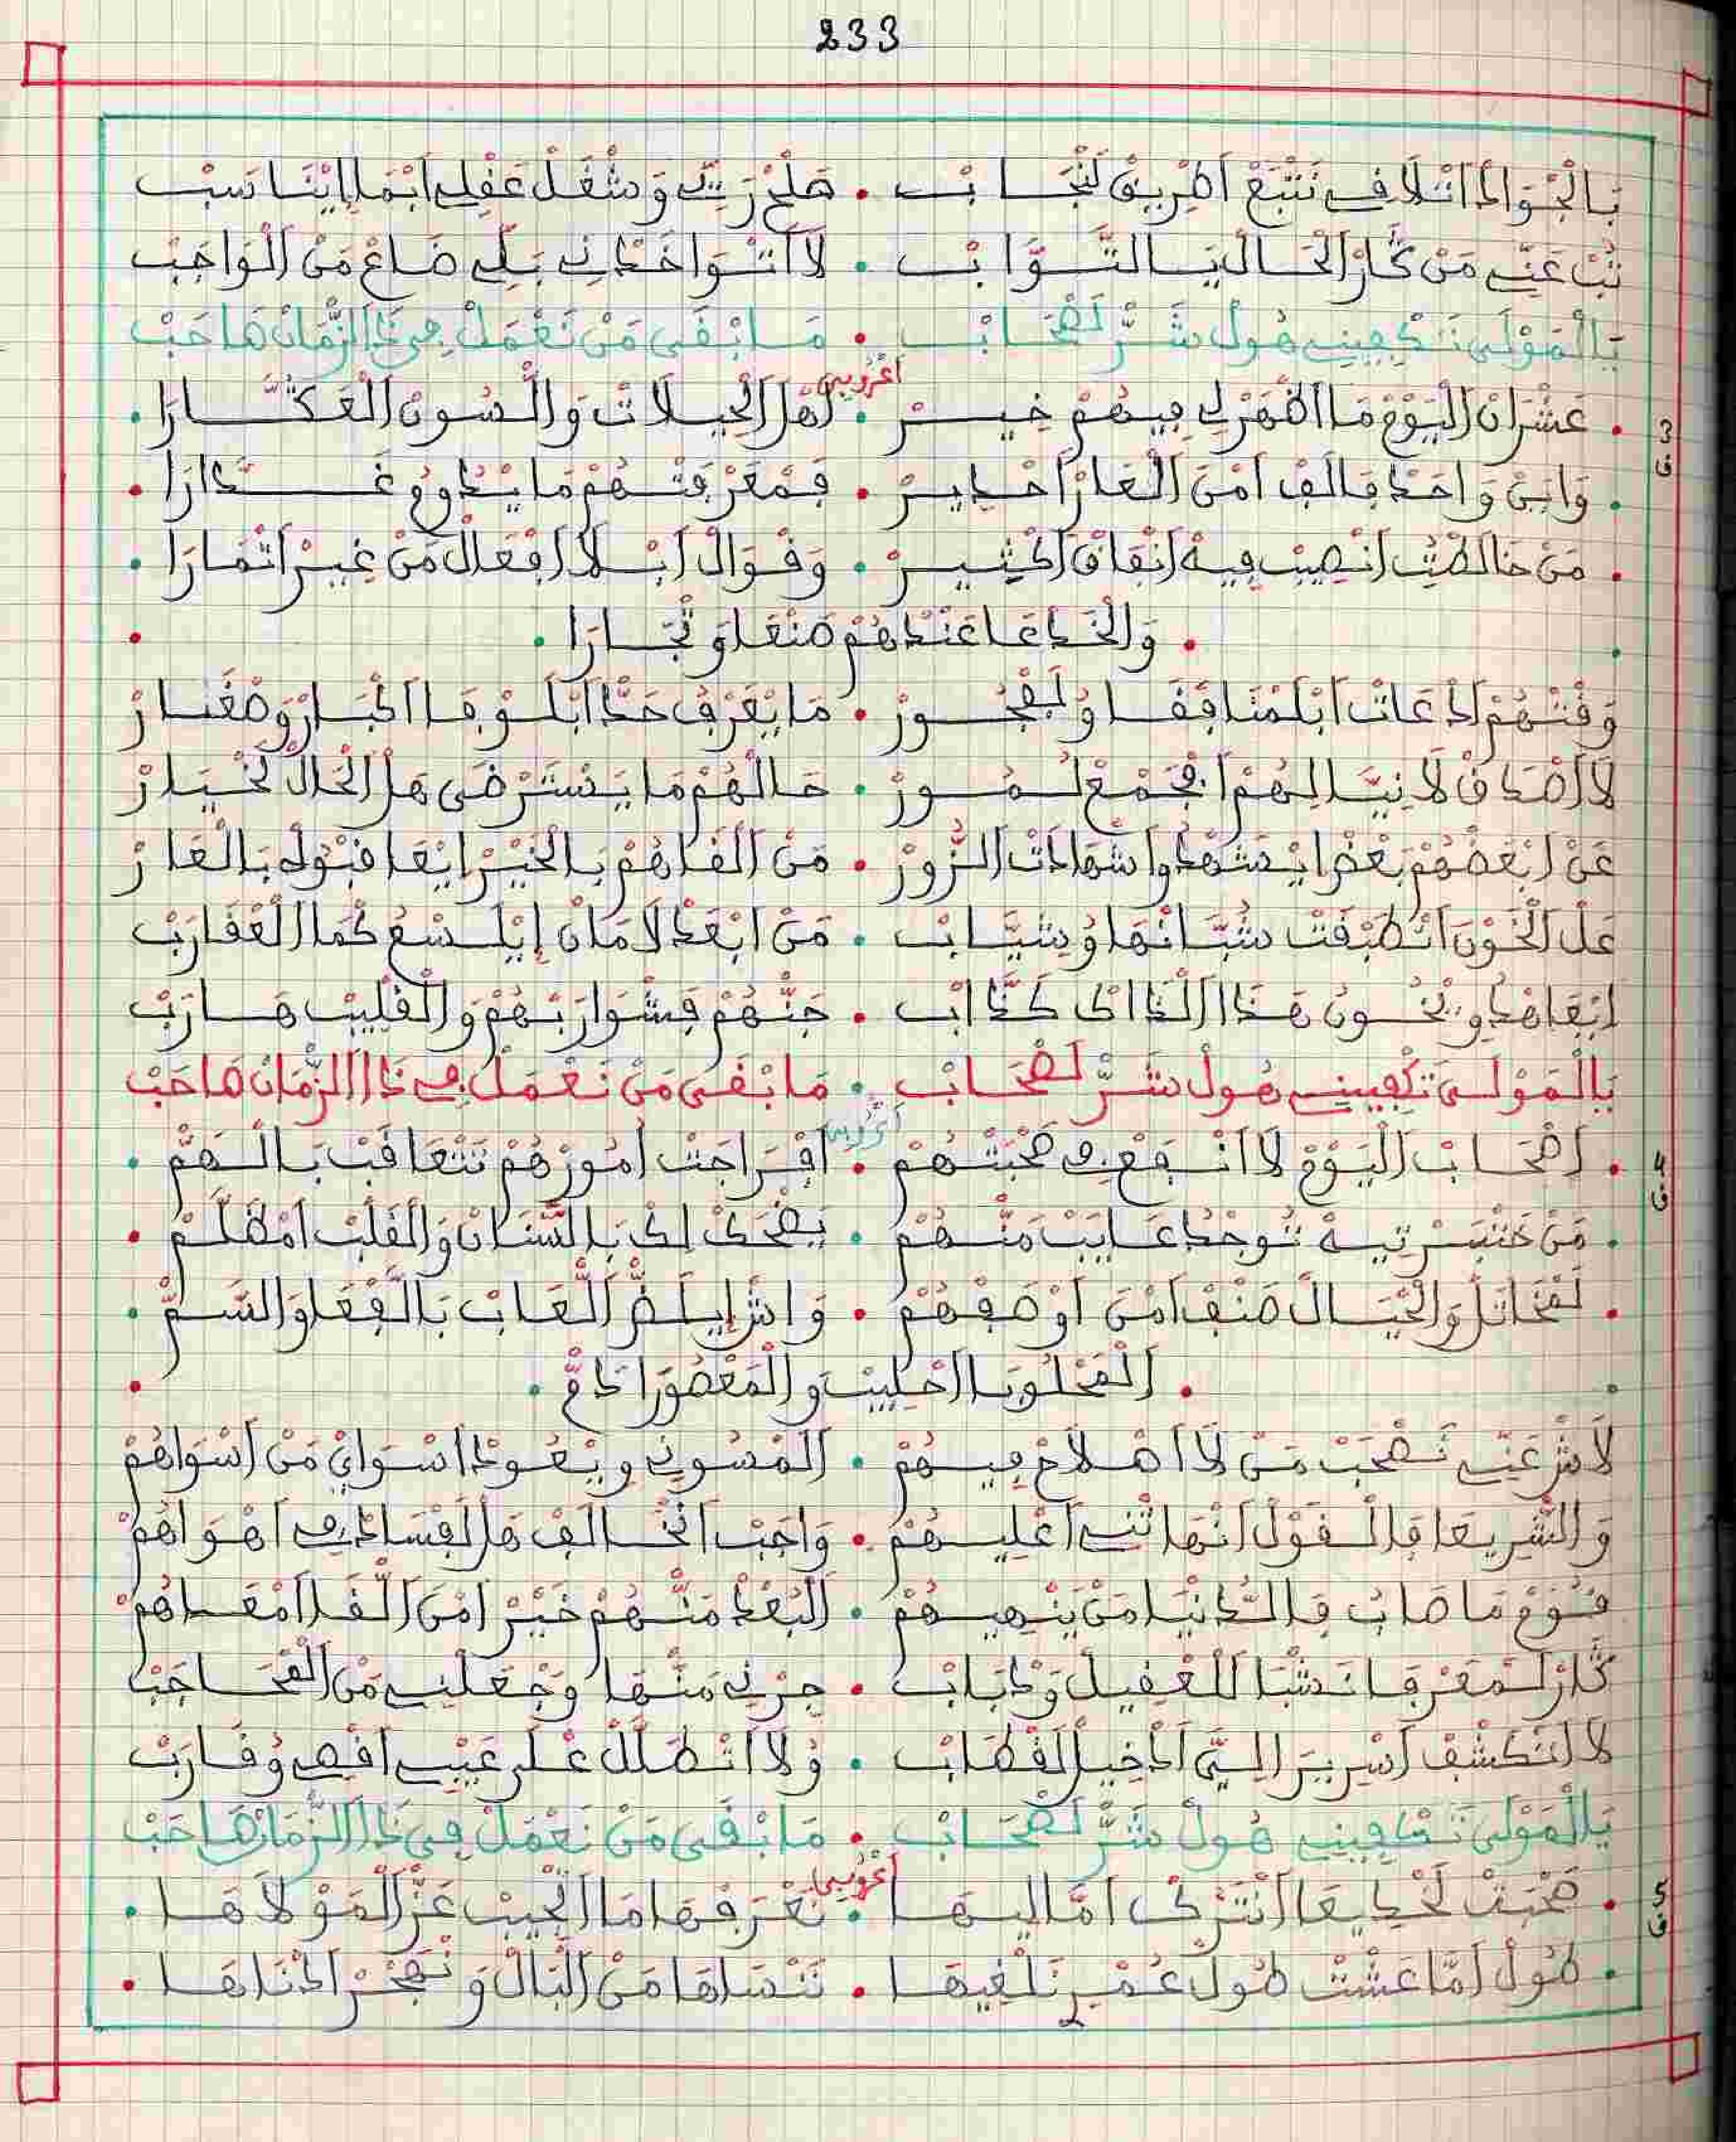 233
بَالْجُوَادْ اَتْلَافِي نَتْبَعْ اَطْرِيقْ لَنْجَابْ • صَلَحْ رَيِّي وَشْغَلْ عَقْلِي اَبْمَا اِيْنَاسَبْ
تُبْ عَنِّي مَنْ كَارْ الْحَالْ يَا التَّوَّابْ • لَا اَتْوَاخَدْنِي بَلِّي ضَاعْ مَنْ الْوَاجَبْ
يَا الْمَوْلَى تَكْفِينِي هُولْ شَرّْ لَصْحَابْ • مَا بْقَى مَنْ نَعْمَلْ فِي ذَا الزّْمَانْ صَاحَبْ
اعْرُوبِي
3 ف
• عَشْرَانْ الْيَوْمْ مَا اظْهَرْ لِي فِيهُمْ خِيرْ • اَهْلْ الْحِيلَاتْ وَالْسُونْ الْعَكَّارَا •
• وَابْنْ وَاحَدْ فَالَفْ اَمْنْ الْعَارْ اَحْدِيرْ • فَمْعَرْفَتْهُمْ مَا يْدُومُ غَدَّارَا •
• مَنْ خَالَطْتْ اَنْصِيبْ فِيهْ اَنْفَاقْ اَكْثِيرْ • وَقْوَالْ اَبْلَا اَفْعَالْ مَنْ غِيرْ اَتْمَارَا •
• وَالْخَدْعَا عَنْدْهُمْ صَنْعَا وَتْجَارَا •
وَقْتْهُمْ اَدْعَاتْ اَبْلَمْنَافْقَا وُلَفْجُورْ • مَا يْعَرْفْ حَدّْ اَبْلَوْفَا اَكْبَارْ وَصْغَارْ
لَا اَصْدَاقْ لَا نِيَّا لِيهُمْ اَفْجَمْعْ لُمُورْ • حَالْهُمْ مَا يَسْتَرْضَى هَلْ الْحَالْ لَخْيَارْ
عَنْ اَبْعَضْهُمْ بَعْضْ اِيْشَهْدُوا شَهَادَاتْ الزُّورْ • مَنْ الْقَاهُمْ بَالْخَيْرْ اِيْعَاقْبُوهْ بَالْعَارْ
عَلْ الْخَوْنْ اَتْطَبْقَتْ شُبَّانْهَا وُشِيَّابْ • مَنْ اَبْعَدْ لَامَانْ اِيْلَسْعُ كْمَا الْعْقَارَبْ
اِيْعَاهْدُو وِيْخُونُ هَذَا الْذَاكْ كَذَّابْ • جَنّْهُمْ فَشْوَارَبْهُمْ وَالْقْلِيبْ هَارَبْ
يَا الْمَوْلَى تَكْفِينِي هُولْ شَرّْ لَصْحَابْ • مَا بْقَى مَنْ نَعْمَلْ فِي ذَا الزّْمَانْ صَاحَبْ
اعْرُوبِي
4 ف
• اَصْحَابْ الْيَوْمْ لَا اَنْفَعْ فِي صَحْبَتْهُمْ • اَفْرَاجَتْ اُمُورْهُمْ تَتْعَاقَبْ بَالْهَمّْ •
• مَنْ خَنْبَرْتِيهْ تُوجْدُ عَايَبْ مَنّْهُمْ • يَضْحَكْ لَكْ بَالسّْنَانْ وَالْقَلْبْ اَمْظَلَّمْ •
• لَمْخَاتَلْ وَالْحْيَالْ صَنْفْ اَمْنْ اَوْصَفْهُمْ • وَاشْ اِيْلَذّْ الْعَابْ بَالْفْعَا وَالسَّمّْ •
• الْمَحْلُوبَا اَحْلِيبْ وَالْمَعْصُورَا دَمّْ •
لَاشْ عَنِّي نَصْحَبْ مَنْ لَا اَصْلَاحْ فِيهُمْ • الْمْسُونِي وِيْعُودْ اَسْوَايْ مَنْ اَسْوَاهُمْ
وَالشّْرِيعَا فَالْقَوْلْ اَنْهَاتْنِي اَعْلِيهُمْ • وَاجَبْ اَنْخَالَفْ هَلْ لَفْسَادْ فِي اَهْوَاهُمْ
قَوْمْ مَا صَابُ فَالدَّنْيَا مَنْ يَنْهِيهُمْ • الْبُعْدْ مَنّْهُمْ خَيْرْ اَمْنْ الْقَا اَمْعَاهُمْ
كَارْ لَمْعَرْفَا نَشْبَا لَلْعْقِيلْ وَدْبَابْ • جِرْنِي مَنْهَا وَجْعَلْنِي مَنْ الْمْحَاجَبْ
لَا اَتْكَشْفْ اَسْرِيرَ الِيَّ اَدْخِيلْ لَقْطَابْ • وُلَا اَتْطَلَّلْ عْلَى عَيْبِي اَقْصِي وُقَارَبْ
يَا الْمَوْلَى تَكْفِينِي هُولْ شَرّْ لَصْحَابْ • مَا بْقَى مَنْ نَعْمَلْ فِي ذَا الزّْمَانْ صَاحَبْ
اعْرُوبِي
5 ف
• صَحْبَتْ لَخْدِيعَا اَنْتَرْكْ اَمَّالِيهَا • نَعْرَفْهَا مَا اَتْجِيبْ عَزّْ الْمَوْلَاهَا •
• طُولْ اَمَّا عَشْتْ طُولْ عُمْرِي نَلْغِيهَا • نَنْسَاهَا مَنْ الْبَالْ وَنْهَجْرْ اَدْنَاهَا •